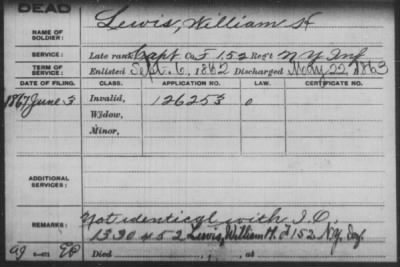 DEAD
NAME OF SOLDIER: Lewis, William H
SERVICE: Late rank Capt Co. F 152 Reg't N Y Inf
TERM OF SERVICE: Enlisted Sept. 6, 1862 Discharged May 22 1863
DATE OF FILING. CLASS. APPLICATION NO. LAW. CERTIFICATE NO.
1867 June 3 Invalid, 126253 0
Widow,
Minor,
ADDITIONAL SERVICES:
REMARKS: Not identical with I.O.
1330452 Lewis, William H. F 152 N.Y. Inf.
Died , at